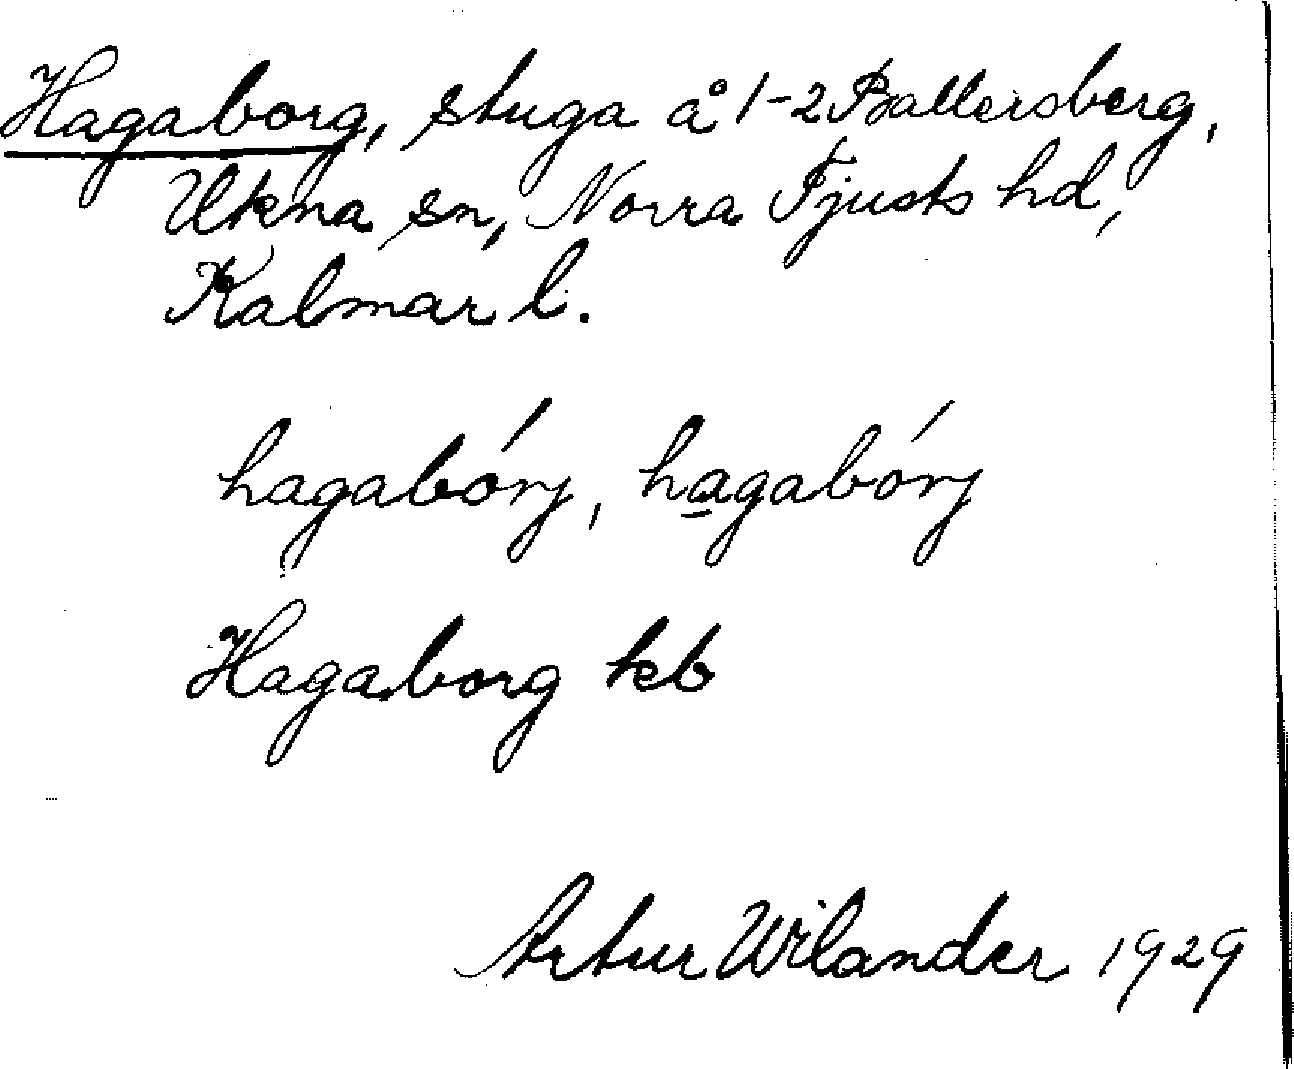 Hagaborg, stuga å 1-2 Ballersberg,
Ukna sn, Norra Tjusts hd,
Kalmar l.
hagabórj, ha̲gabórj
Hagaborg kb
Artur Wilander 1929